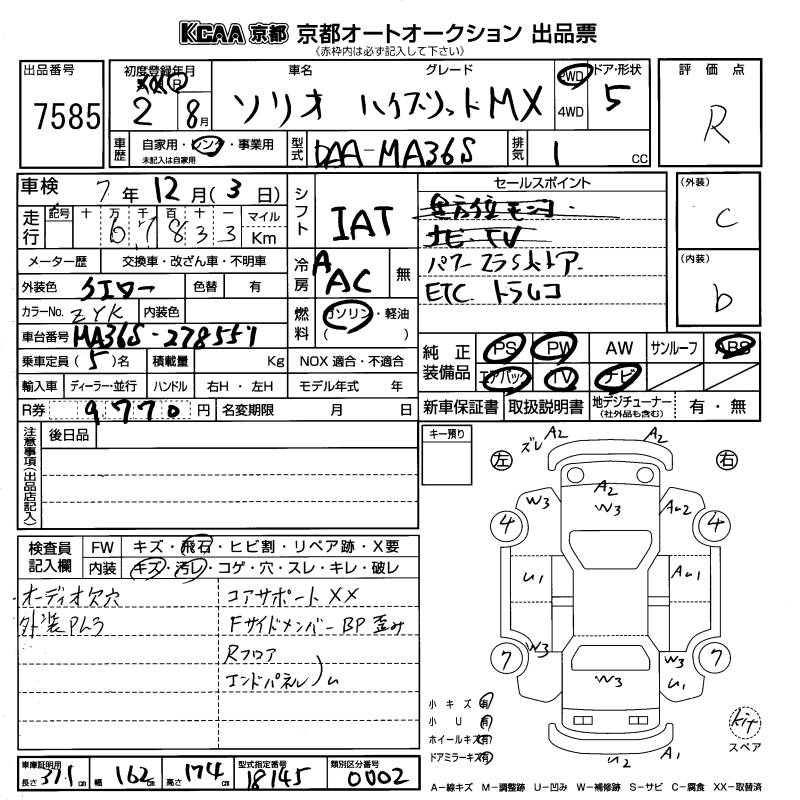 KCAA 京都 京都オートオークション 出品票
(赤枠内は必ず記入して下さい)
出品番号 初度登録年月 車名 グレード 2WD ドア・形状 評価点
7585 R 2 8月 ソリオ ハイブリッドMX 4WD 5 R
車歴 自家用・レンタ・事業用 未記入は自家用 型式 DAA-MA36S 排気 1 CC
車検 7年 12月(3日) シフト IAT セールスポイント (外装) C
走行 記号 十 万 千 百 十 一 マイル Km 全方位モニター
67833 ナビ・TV
メーター歴 交換車・改ざん車・不明車 冷房 A AC 無 パワースライドドア (内装) b
外装色 イエロー 色替 有 ETC トラムコ
カラーNo. ZYK 内装色 燃料 ガソリン・軽油 ( )
車台番号 MA36S-278551
乗車定員(5)名 積載量 Kg NOX 適合・不適合 純正装備品 PS PW AW サンルーフ ABS
輸入車 ディーラー・並行 ハンドル 右H・左H モデル年式 年 エアバック TV ナビ
R券 9770円 名変期限 月 日 新車保証書 取扱説明書 地デジチューナー (社外品も含む) 有・無
注意事項(出品店記入) 後日品
キー預り
左 右
ズレ A2 A2
A2
W3 W3 AU2
4 4
U1 AU1
W3 W3
7 7
W3 U1
U2 A1
検査員記入欄 FW キズ・飛石・ヒビ割・リペア跡・X要
内装 キズ・汚レ・コゲ・穴・スレ・キレ・破レ
オーディオ欠穴 コアサポートXX
外装PL3 Fサイドメンバー BP歪み
Rフロア
エンドパネル)U
小キズ 有
小U 有
ホイールキズ 有
ドアミラーキズ 有
kit
スペア
車庫証明用 長さ 371cm 幅 162cm 高さ 174cm 型式指定番号 18145 類別区分番号 0002
A―線キズ M―調整跡 U―凹み W―補修跡 S―サビ C―腐食 XX―取替済